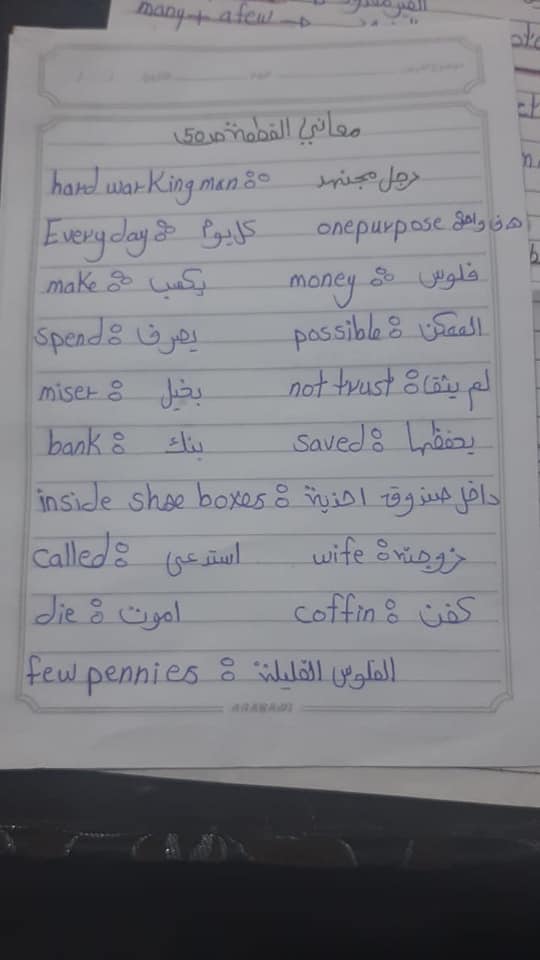 many + a few →
معاني القطعة ص50
hard working man: رجل مجتهد
Every day: كل يوم one purpose: هدف واحد
make: يكسب money: فلوس
spend: يصرف possible: الممكن
miser: بخيل not trust: لم يثق
bank: بنك saved: يحفظها
inside shoe boxes: داخل صندوق احذية
called: استدعى wife: زوجته
die: اموت coffin: كفن
few pennies: الفلوس القليلة